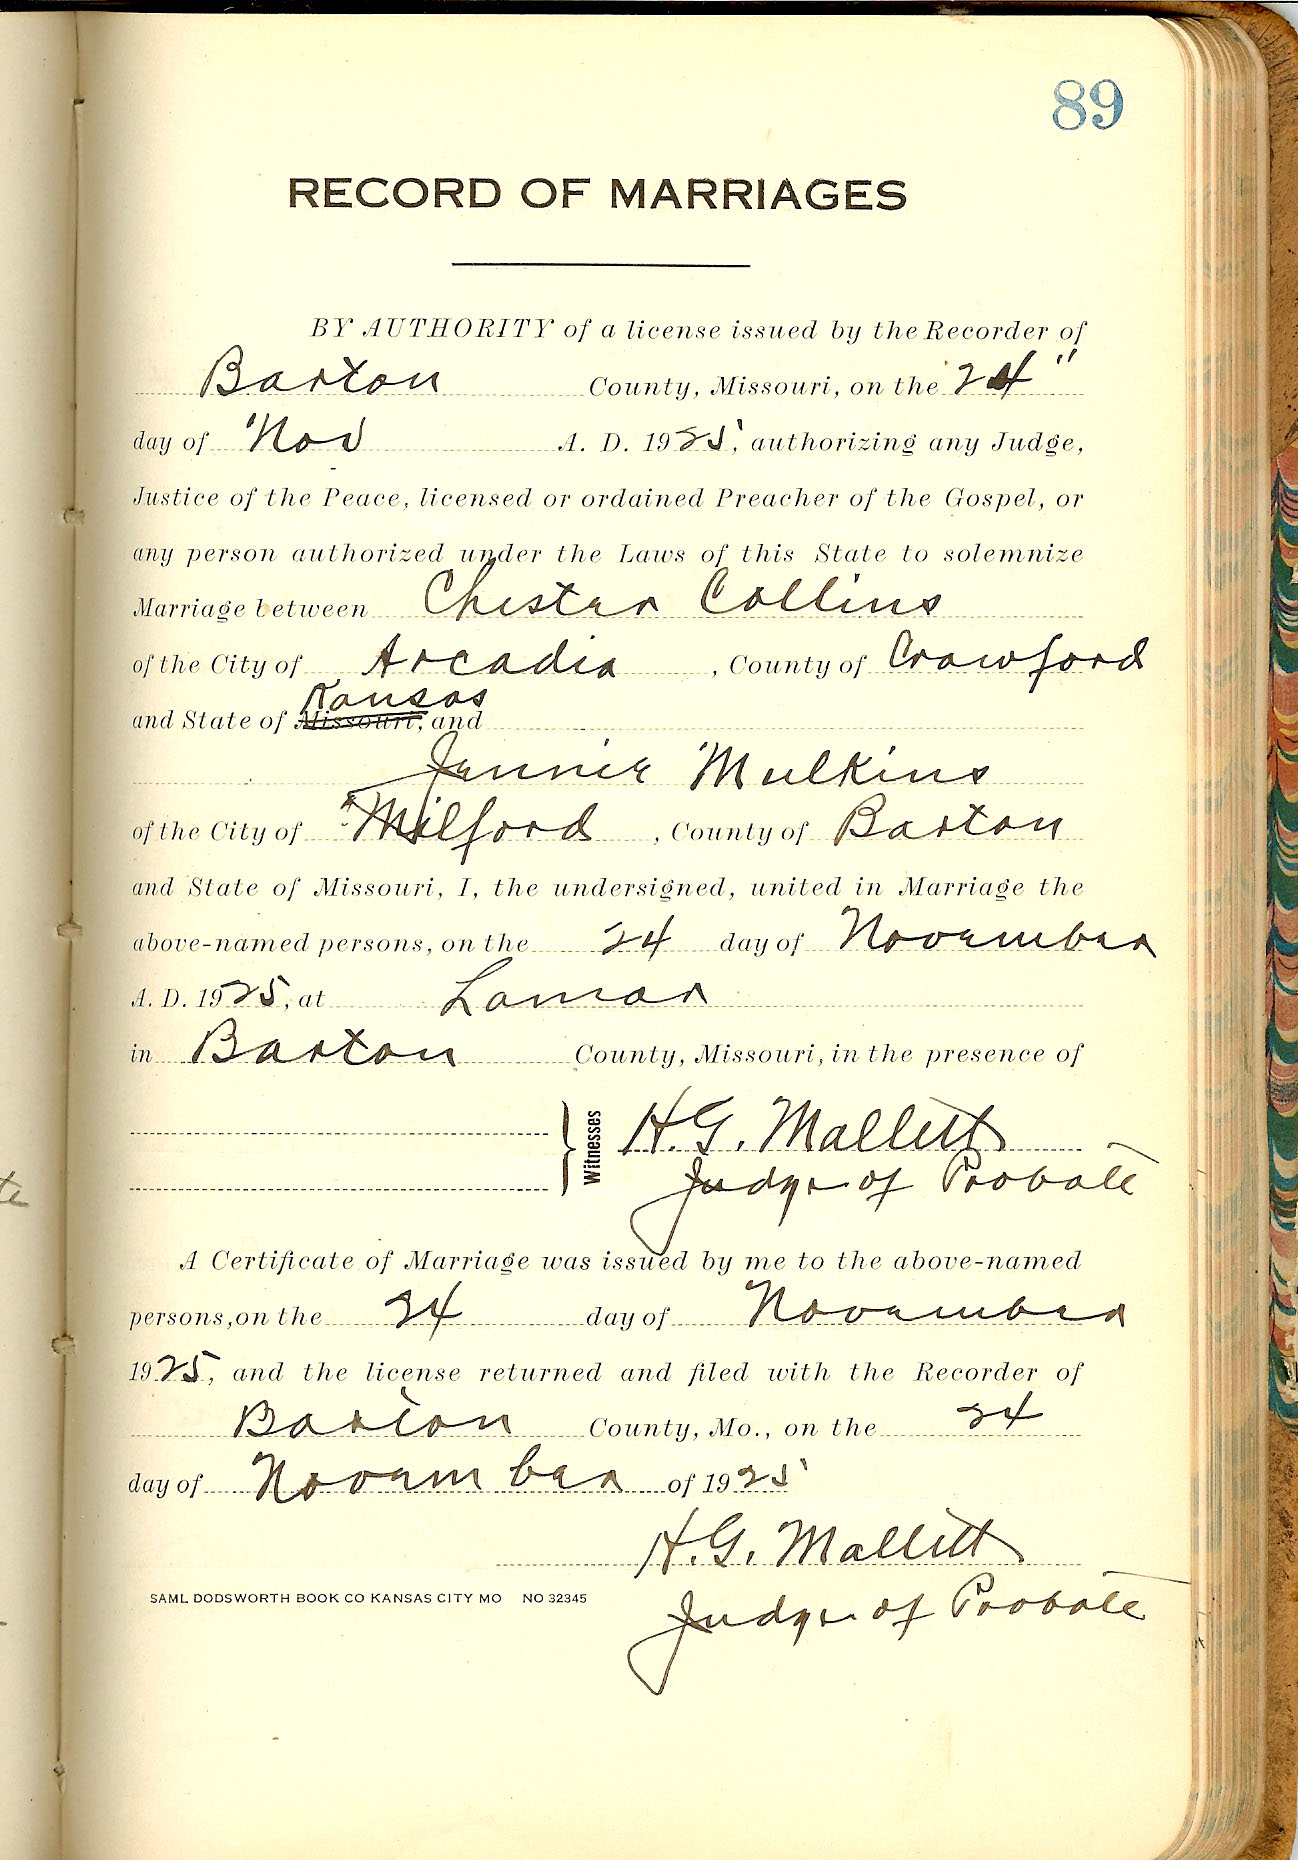 89
RECORD OF MARRIAGES
BY AUTHORITY of a license issued by the Recorder of
Barton County, Missouri, on the 24"
day of Nov A. D. 1925, authorizing any Judge,
Justice of the Peace, licensed or ordained Preacher of the Gospel, or
any person authorized under the Laws of this State to solemnize
Marriage between Chester Collins
of the City of Arcadia, County of Crawford
Kansas
and State of Missouri, and
Jennie Mulkins
of the City of Milford, County of Barton
and State of Missouri, I, the undersigned, united in Marriage the
above-named persons, on the 24 day of November
A. D. 1925, at Lamar
in Barton County, Missouri, in the presence of
Witnesses H. G. Mallett
Judge of Probate
A Certificate of Marriage was issued by me to the above-named
persons, on the 24 day of November
1925, and the license returned and filed with the Recorder of
Barton County, Mo., on the 24
day of November of 1925
H. G. Mallett
SAML DODSWORTH BOOK CO KANSAS CITY MO NO 32345
Judge of Probate